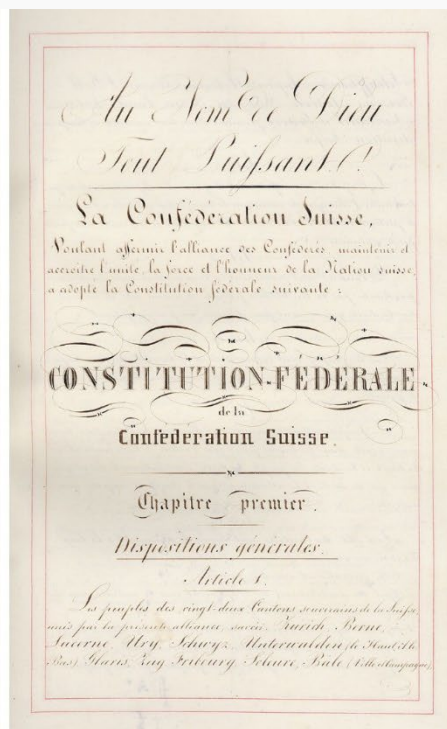 Au Nom de Dieu
Tout Puissant!
La Confédération Suisse,
Voulant affermir l'alliance des Confédérés, maintenir et
accroître l'unité, la force et l'honneur de la Nation suisse,
a adopté la Constitution fédérale suivante :
CONSTITUTION-FÉDÉRALE
de la
Confédération Suisse.
Chapitre premier.
Dispositions générales.
Article 1.
Les peuples des vingt-deux Cantons souverains de la Suisse,
unis par la présente alliance, savoir: Zurich, Berne,
Lucerne, Ury, Schwyz, Unterwalden (le Haut et le
Bas), Glaris, Zug, Fribourg, Soleure, Bâle (Ville et Campagne)